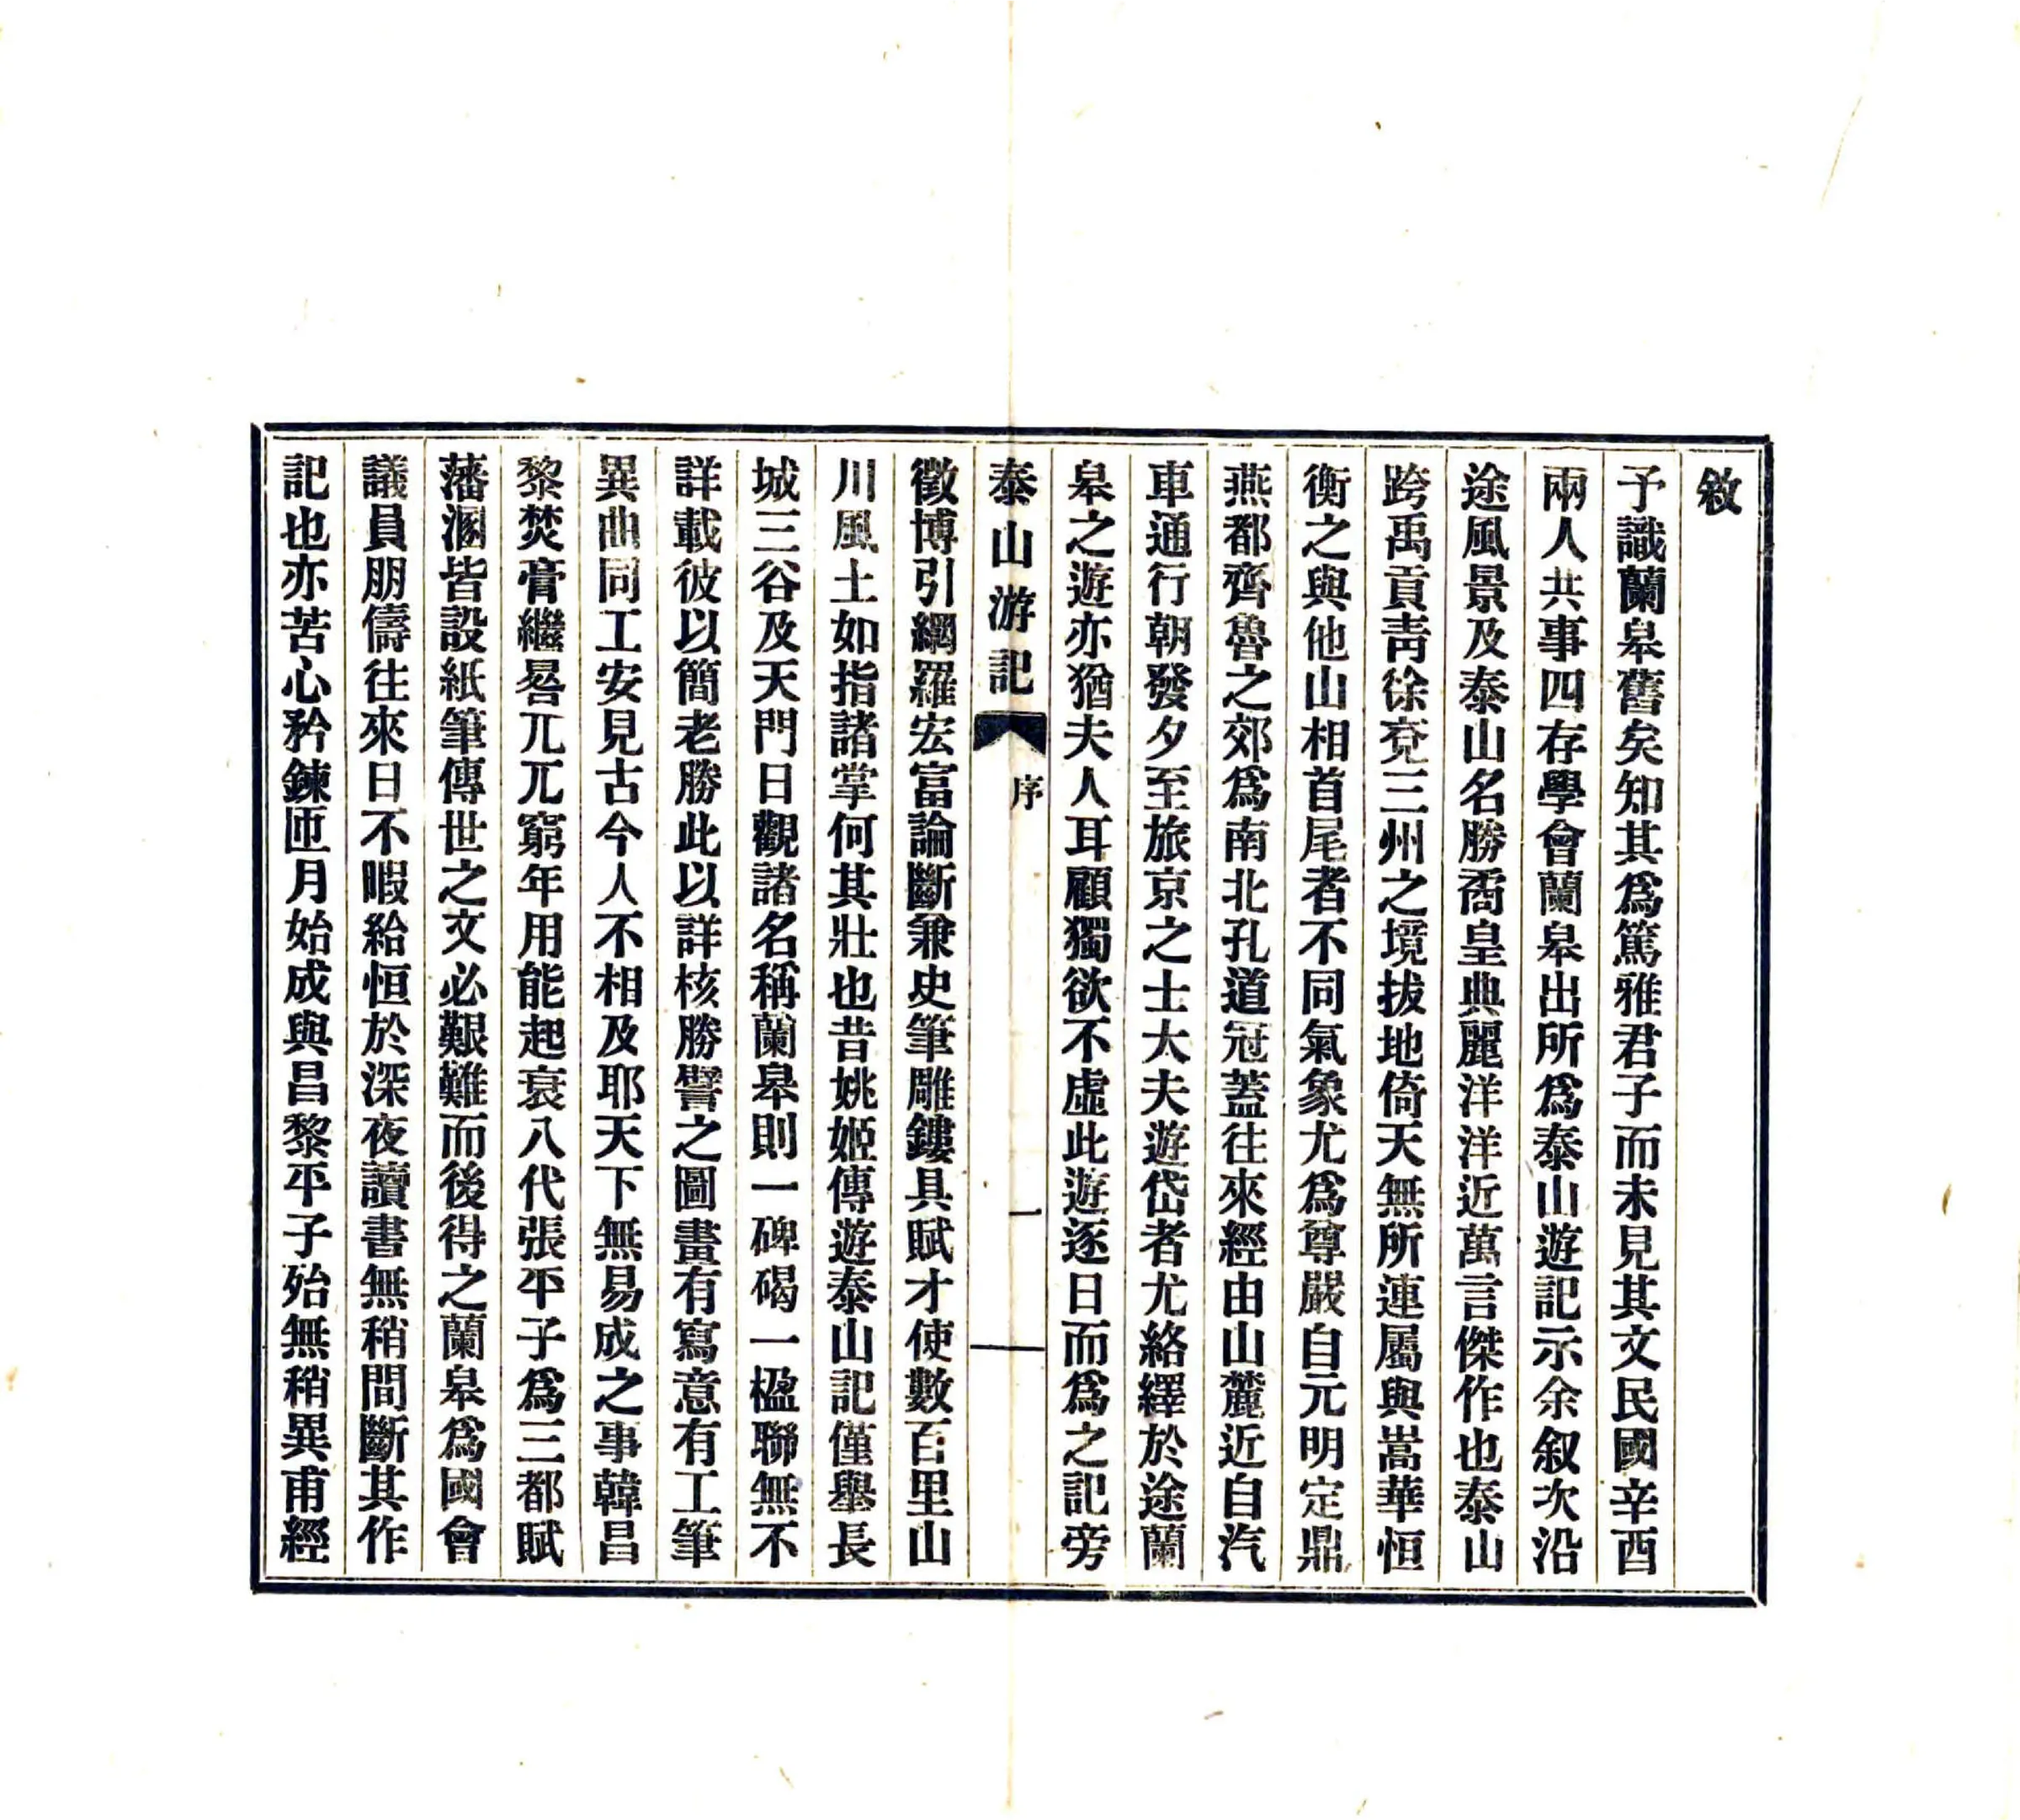 敘
予識蘭皋舊矣知其爲篤雅君子而未見其文民國辛酉
兩人共事四存學會蘭皋出所爲泰山遊記示余叙次沿
途風景及泰山名勝矞皇典麗洋洋近萬言傑作也泰山
跨禹貢靑徐兗三州之境拔地倚天無所連屬與嵩華恒
衡之與他山相首尾者不同氣象尤爲尊嚴自元明定鼎
燕都齊魯之郊爲南北孔道冠蓋往來經由山麓近自汽
車通行朝發夕至旅京之士大夫遊岱者尤絡繹於途蘭
皋之遊亦猶夫人耳顧獨欲不虛此遊逐日而爲之記旁
泰山游記
序
一
徵博引網羅宏富論斷兼史筆雕鏤具賦才使數百里山
川風土如指諸掌何其壯也昔姚姬傳遊泰山記僅舉長
城三谷及天門日觀諸名稱蘭皋則一碑碣一楹聯無不
詳載彼以簡老勝此以詳核勝譬之圖畫有寫意有工筆
異曲同工安見古今人不相及耶天下無易成之事韓昌
黎焚膏繼晷兀兀窮年用能起衰八代張平子爲三都賦
藩溷皆設紙筆傳世之文必艱難而後得之蘭皋爲國會
議員朋儔往來日不暇給恒於深夜讀書無稍間斷其作
記也亦苦心矜鍊匝月始成與昌黎平子殆無稍異甫經